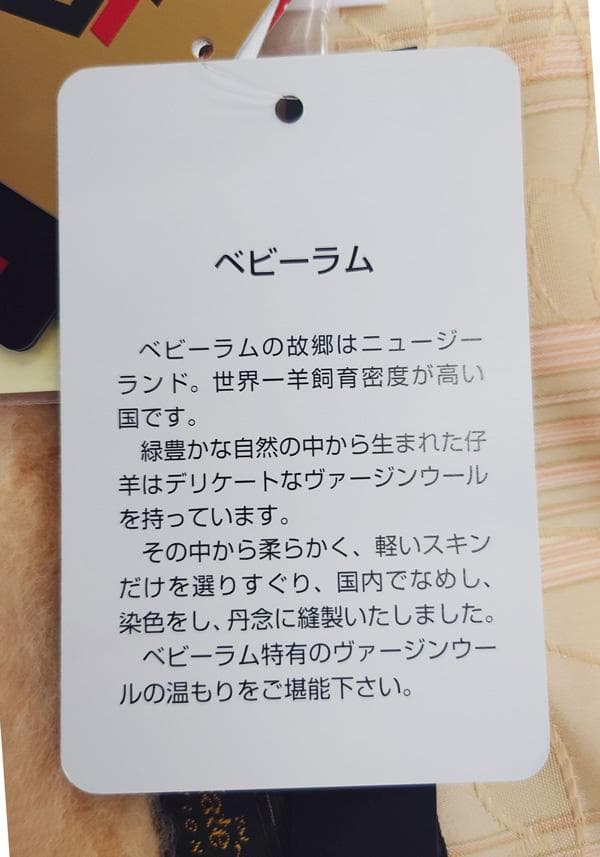 ベビーラム
ベビーラムの故郷はニュージー
ランド。世界一羊飼育密度が高い
国です。
緑豊かな自然の中から生まれた仔
羊はデリケートなヴァージンウール
を持っています。
その中から柔らかく、軽いスキン
だけを選りすぐり、国内でなめし、
染色をし、丹念に縫製いたしました。
ベビーラム特有のヴァージンウー
ルの温もりをご堪能下さい。